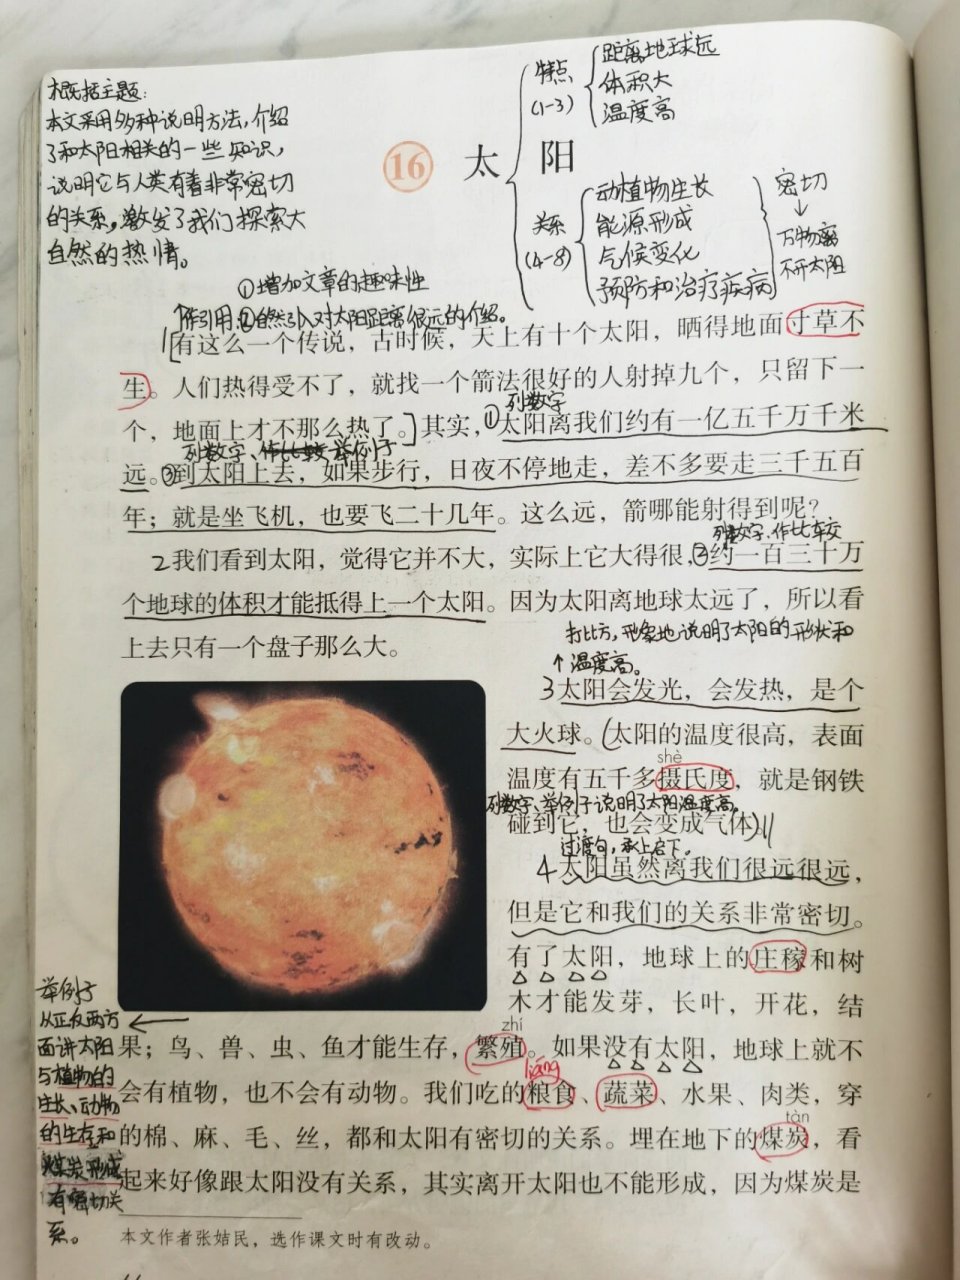 概括主题:
本文采用多种说明方法,介绍
了和太阳相关的一些知识,
说明它与人类有着非常密切
的关系。激发了我们探索大
自然的热情。
16 太阳
特点
(1-3)
距离地球远
体积大
温度高
关系
(4-8)
动植物生长
能源形成
气候变化
预防和治疗疾病
密切
↓
万物离
不开太阳
①增加文章的趣味性
作引用:②自然引入对太阳距离很远的介绍。
1[有这么一个传说,古时候,天上有十个太阳,晒得地面寸草不
生。人们热得受不了,就找一个箭法很好的人射掉九个,只留下一
列数字
个,地面上才不那么热了。]其实,①太阳离我们约有一亿五千万千米
列数字、作比较 举例子
远。③到太阳上去,如果步行,日夜不停地走,差不多要走三千五百
年;就是坐飞机,也要飞二十几年。这么远,箭哪能射得到呢?
列数字、作比较
2我们看到太阳,觉得它并不大,实际上它大得很,②约一百三十万
个地球的体积才能抵得上一个太阳。因为太阳离地球太远了,所以看
上去只有一个盘子那么大。
打比方,形象地说明了太阳的形状和
↑温度高。
3太阳会发光,会发热,是个
大火球。(太阳的温度很高,表面
shè
温度有五千多摄氏度,就是钢铁
列数字、举例子说明了太阳温度高。
碰到它,也会变成气体)。‖
过渡句,承上启下。
4太阳虽然离我们很远很远,
但是它和我们的关系非常密切。
有了太阳,地球上的庄稼和树
木才能发芽,长叶,开花,结
zhí
果;鸟、兽、虫、鱼才能生存,繁殖。如果没有太阳,地球上就不
liáng
会有植物,也不会有动物。我们吃的粮食、蔬菜、水果、肉类,穿
tàn
的棉、麻、毛、丝,都和太阳有密切的关系。埋在地下的煤炭,看
起来好像跟太阳没有关系,其实离开太阳也不能形成,因为煤炭是
举例子
从正反两方
面讲太阳
与植物的
生长、动物
的生存和
煤炭形成
有密切关
系。
本文作者张姞民,选作课文时有改动。